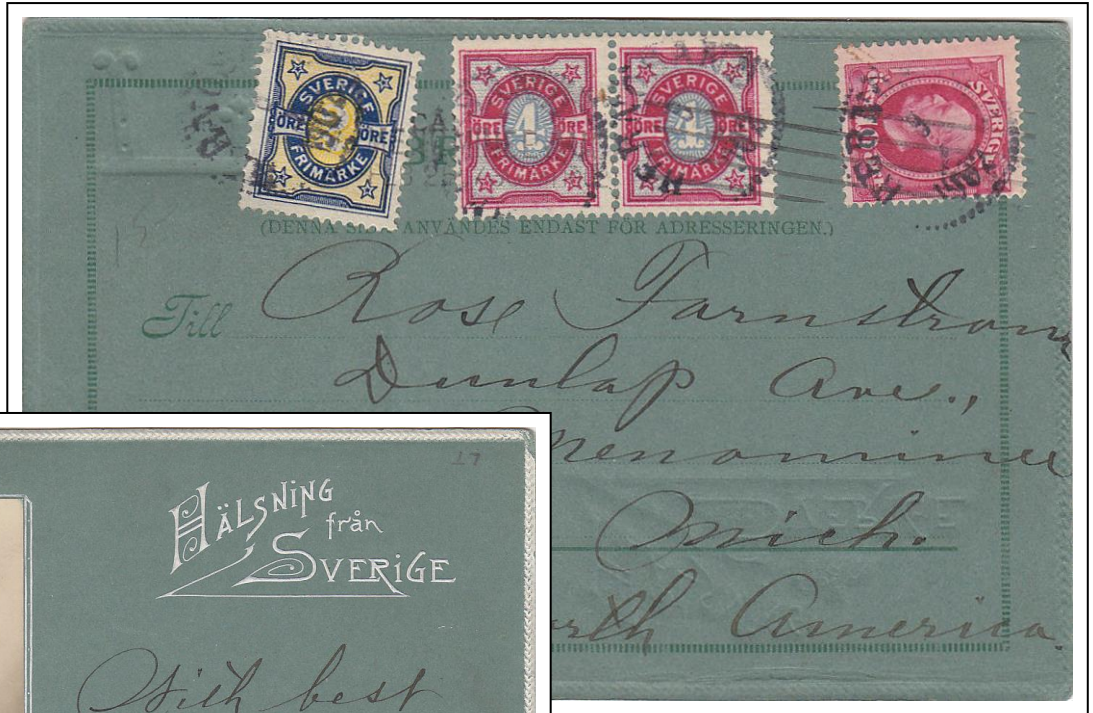 SVERIGE
ÖRE ÖRE
FRIMÄRKE
SVERIGE
ÖRE 4 ÖRE
FRIMÄRKE
SVERIGE
ÖRE 4 ÖRE
FRIMÄRKE
SVERIGE
(DENNA ANVÄNDES ENDAST FÖR ADRESSERINGEN.)
Till Rose Farnstrom
Dunlap Ave.,
Menominee
Mich.
North America.
17
HÄLSNING
från
SVERIGE
With best